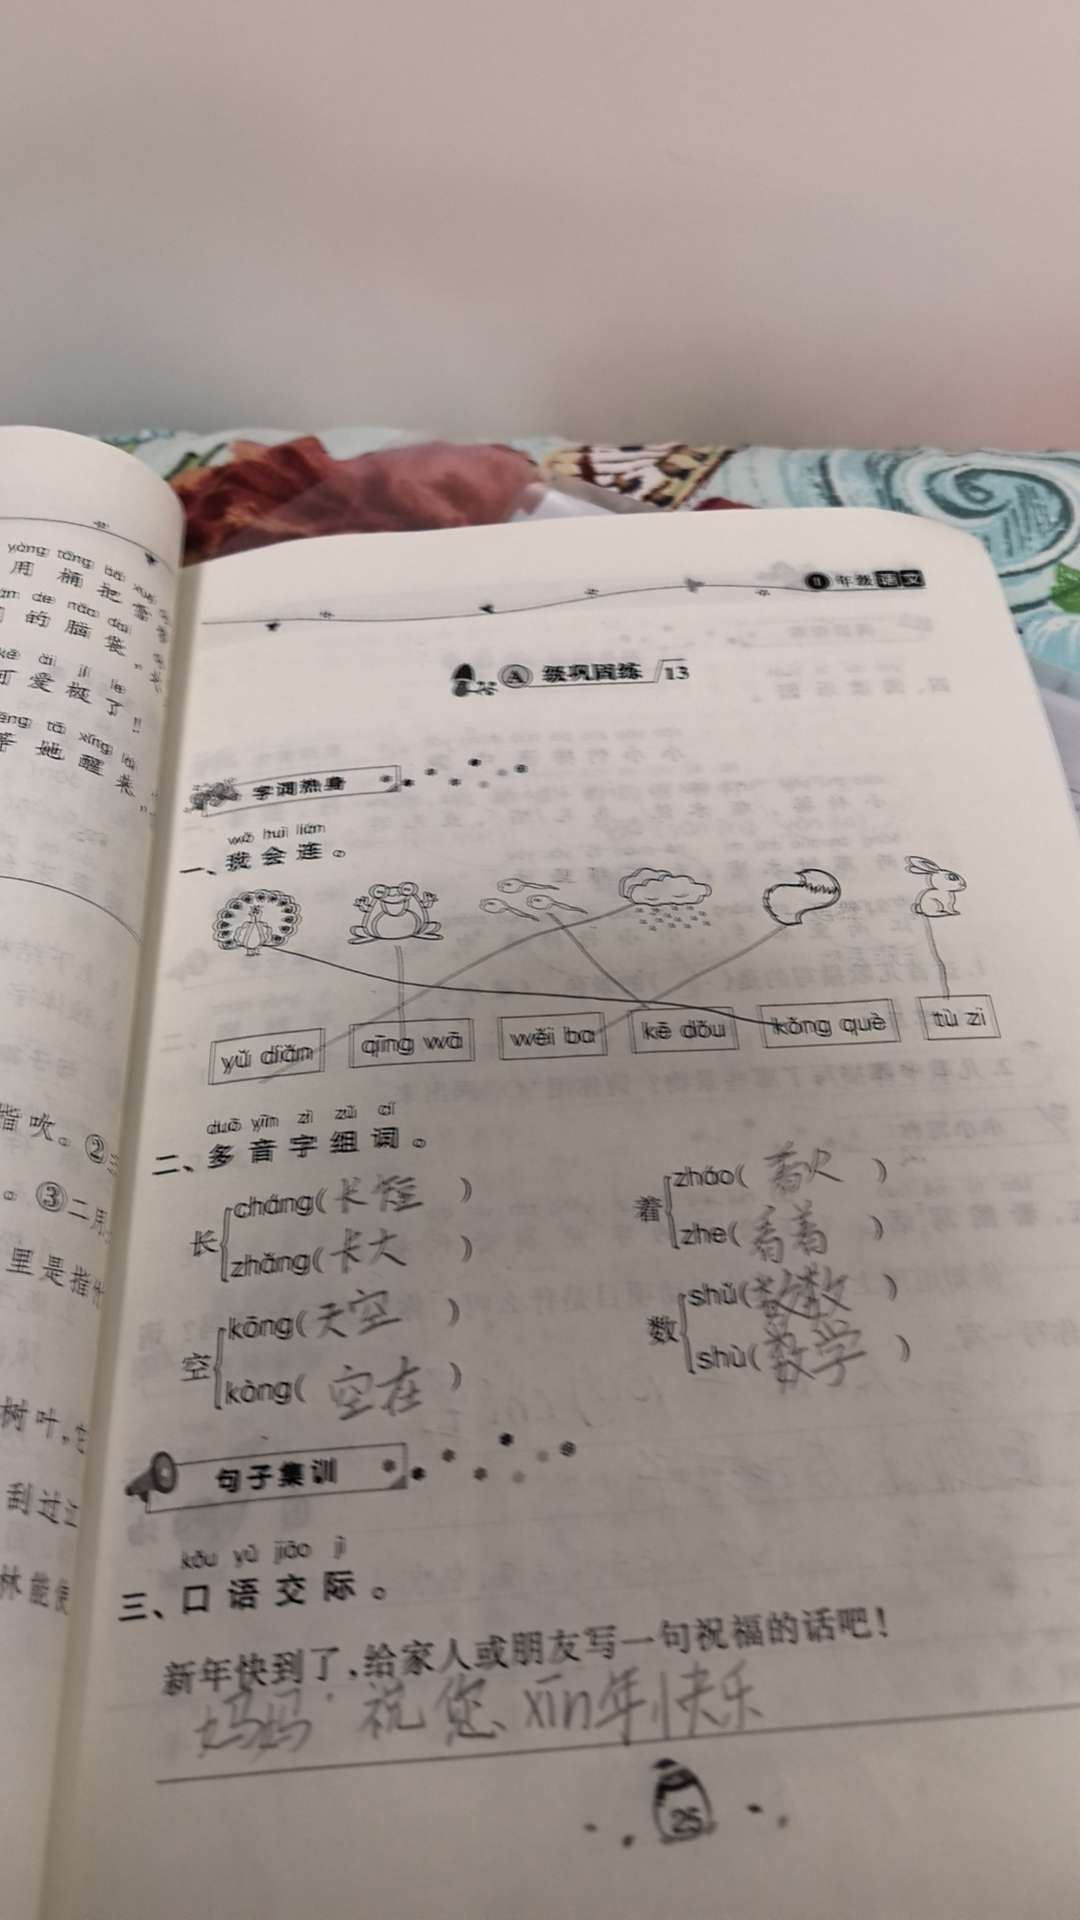 yòng tǒng bǎ xuě
用 桶 把 雪
的 脑 袋。
kě ài jí le
可 爱 极 了!
děng tā xǐng lái
等 她 醒 来
指吹。②
。③二月
里是指
树叶,
刮过江
林能使
年级语文
A 级巩固练 13
字词热身
wǒ huì lián
一、我会连。
yǔ diǎn qīng wā wěi ba kē dǒu kǒng què tù zi
duō yīn zì zǔ cí
二、多音字组词。
长 cháng(长短) 着 zháo(着火)
zhǎng(长大) zhe(看着)
空 kōng(天空) 数 shǔ(数数)
kòng(空在) shù(数学)
句子集训
kǒu yǔ jiāo jì
三、口语交际。
新年快到了,给家人或朋友写一句祝福的话吧!
妈妈,祝您xīn年快乐
25